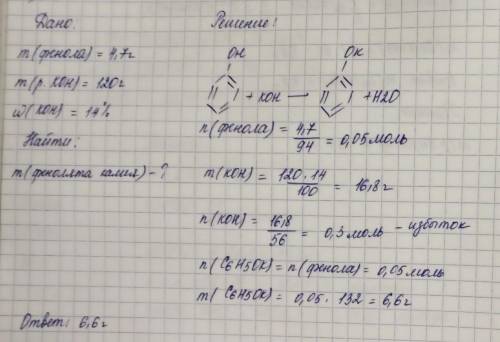 Дано:
m(фенола) = 4,7г
m(р. KOH) = 120г
ω(KOH) = 14%
Найти:
m(фенолята калия) - ?
Решение:
OH OK
+ KOH → + H2O
n(фенола) = 4,7 / 94 = 0,05 моль
m(KOH) = 120 · 14 / 100 = 16,8г
n(KOH) = 16,8 / 56 = 0,3 моль - избыток
n(C6H5OK) = n(фенола) = 0,05 моль
m(C6H5OK) = 0,05 · 132 = 6,6г
Ответ: 6,6г